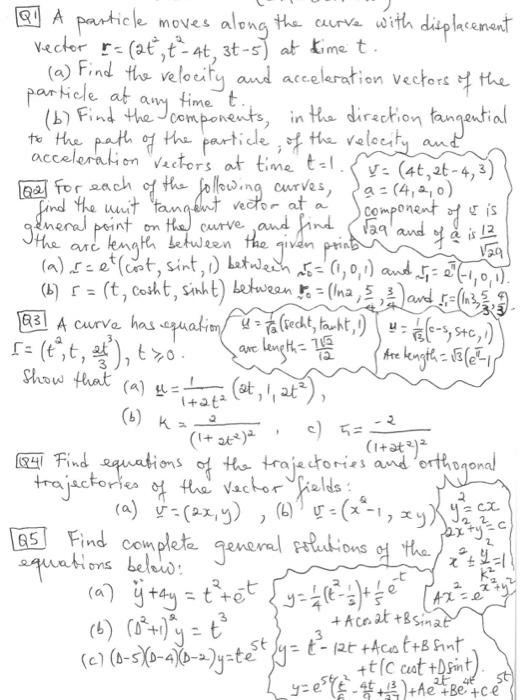 Q1 A particle moves along the curve with displacement
vector r = (2t², t²-4t, 3t-5) at time t.
(a) Find the velocity and acceleration vectors of the
particle at any time t.
(b) Find the components, in the direction tangential
to the path of the particle, of the velocity and
acceleration vectors at time t=1.
v = (4t, 2t-4, 3)
a = (4, 2, 0)
component of v is
√29 and of a is 12/√29
Q2 For each of the following curves,
find the unit tangent vector at a
general point on the curve, and find
the arc length between the given points
(a) r = e^t(cost, sint, 1) between r₀ = (1,0,1) and r₁ = e^π(-1,0,1).
(b) r = (t, cosht, sinht) between r₀ = (ln2, 5/4, 3/4) and r₁ = (ln3, 5/3, 4/3)
u = 1/√2 (secht, tanht, 1)
arc length = 7√2/12
u = 1/√3 (c-s, s+c, 1)
Arc length = √3(e^π-1)
Q3 A curve has equation
r = (t², t, 2t³/3), t ≥ 0.
Show that (a) u = 1/(1+2t²) (2t, 1, 2t²),
(b) κ = 2/(1+2t²)², c) τ = -2/(1+2t²)²
Q4 Find equations of the trajectories and orthogonal
trajectories of the vector fields:
(a) v = (2x, y), (b) v = (x²-1, xy)
y² = cx
2x²+y² = c
x² ± y²/k² = 1
Ax² = e^(x²+y²)
Q5 Find complete general solutions of the
equations below:
(a) ÿ+4y = t²+e^-t
y = 1/4(t²-1/2)+1/5 e^-t
+ Acos2t + Bsin2t
(b) (D²+1)²y = t³
y = t³-12t+Acost+Bsint
+t(C cost+Dsint)
(c) (D-5)(D-4)(D-2)y = te^5t